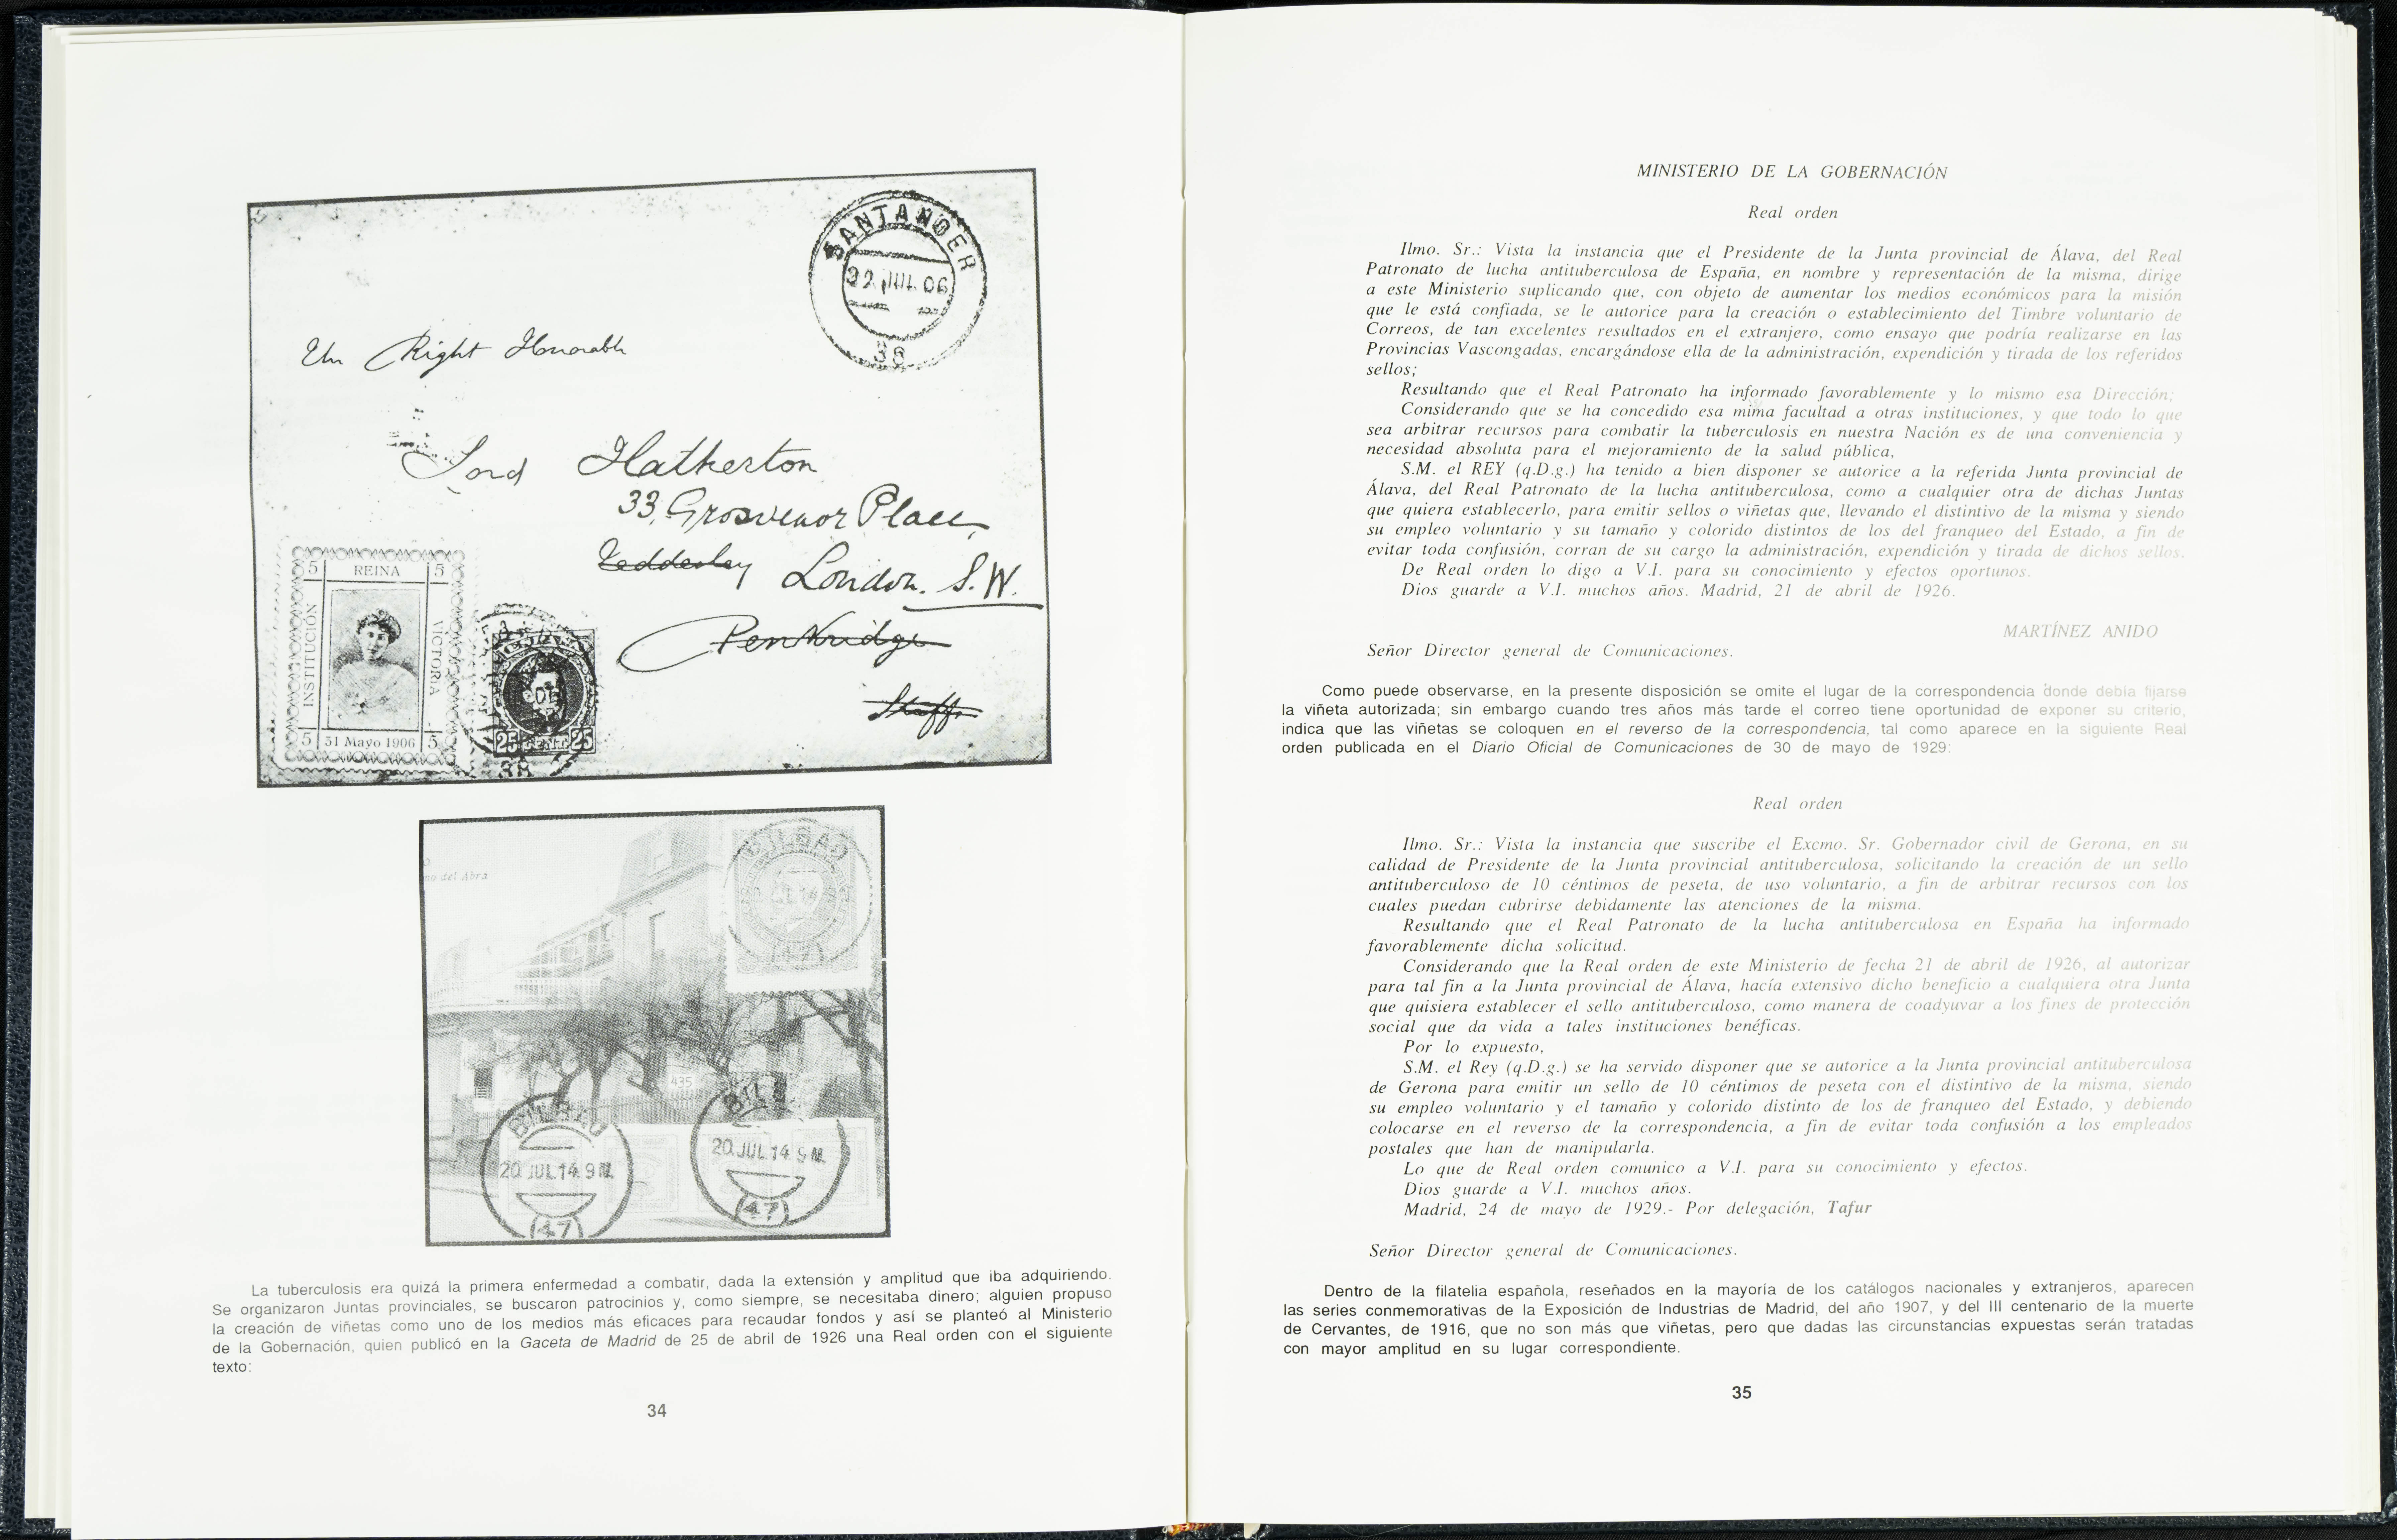 SANTANDER
22 JUL. 06
38
Right Honorable
Lord Hatherton
33, Grosvenor Place,
Teddesley London. S.W.
Penkridge
Staff.
5 REINA 5
INSTITUCIÓN
VICTORIA
5 31 Mayo 1906 5
25 CENT. 25
38
no del Abra
BILBAO
JUL 14
(47)
435
BILBAO
20 JUL 14 9 M.
(47)
BILB
20 JUL 14 9 M.
(47)
La tuberculosis era quizá la primera enfermedad a combatir, dada la extensión y amplitud que iba adquiriendo.
Se organizaron Juntas provinciales, se buscaron patrocinios y, como siempre, se necesitaba dinero; alguien propuso
la creación de viñetas como uno de los medios más eficaces para recaudar fondos y así se planteó al Ministerio
de la Gobernación, quien publicó en la Gaceta de Madrid de 25 de abril de 1926 una Real orden con el siguiente
texto:
34
MINISTERIO DE LA GOBERNACIÓN
Real orden
Ilmo. Sr.: Vista la instancia que el Presidente de la Junta provincial de Álava, del Real
Patronato de lucha antituberculosa de España, en nombre y representación de la misma, dirige
a este Ministerio suplicando que, con objeto de aumentar los medios económicos para la misión
que le está confiada, se le autorice para la creación o establecimiento del Timbre voluntario de
Correos, de tan excelentes resultados en el extranjero, como ensayo que podría realizarse en las
Provincias Vascongadas, encargándose ella de la administración, expendición y tirada de los referidos
sellos;
Resultando que el Real Patronato ha informado favorablemente y lo mismo esa Dirección;
Considerando que se ha concedido esa mima facultad a otras instituciones, y que todo lo que
sea arbitrar recursos para combatir la tuberculosis en nuestra Nación es de una conveniencia y
necesidad absoluta para el mejoramiento de la salud pública,
S.M. el REY (q.D.g.) ha tenido a bien disponer se autorice a la referida Junta provincial de
Álava, del Real Patronato de la lucha antituberculosa, como a cualquier otra de dichas Juntas
que quiera establecerlo, para emitir sellos o viñetas que, llevando el distintivo de la misma y siendo
su empleo voluntario y su tamaño y colorido distintos de los del franqueo del Estado, a fin de
evitar toda confusión, corran de su cargo la administración, expendición y tirada de dichos sellos.
De Real orden lo digo a V.I. para su conocimiento y efectos oportunos.
Dios guarde a V.I. muchos años. Madrid, 21 de abril de 1926.
MARTÍNEZ ANIDO
Señor Director general de Comunicaciones.
Como puede observarse, en la presente disposición se omite el lugar de la correspondencia donde debía fijarse
la viñeta autorizada; sin embargo cuando tres años más tarde el correo tiene oportunidad de exponer su criterio,
indica que las viñetas se coloquen en el reverso de la correspondencia, tal como aparece en la siguiente Real
orden publicada en el Diario Oficial de Comunicaciones de 30 de mayo de 1929:
Real orden
Ilmo. Sr.: Vista la instancia que suscribe el Excmo. Sr. Gobernador civil de Gerona, en su
calidad de Presidente de la Junta provincial antituberculosa, solicitando la creación de un sello
antituberculoso de 10 céntimos de peseta, de uso voluntario, a fin de arbitrar recursos con los
cuales puedan cubrirse debidamente las atenciones de la misma.
Resultando que el Real Patronato de la lucha antituberculosa en España ha informado
favorablemente dicha solicitud.
Considerando que la Real orden de este Ministerio de fecha 21 de abril de 1926, al autorizar
para tal fin a la Junta provincial de Álava, hacía extensivo dicho beneficio a cualquiera otra Junta
que quisiera establecer el sello antituberculoso, como manera de coadyuvar a los fines de protección
social que da vida a tales instituciones benéficas.
Por lo expuesto,
S.M. el Rey (q.D.g.) se ha servido disponer que se autorice a la Junta provincial antituberculosa
de Gerona para emitir un sello de 10 céntimos de peseta con el distintivo de la misma, siendo
su empleo voluntario y el tamaño y colorido distinto de los de franqueo del Estado, y debiendo
colocarse en el reverso de la correspondencia, a fin de evitar toda confusión a los empleados
postales que han de manipularla.
Lo que de Real orden comunico a V.I. para su conocimiento y efectos.
Dios guarde a V.I. muchos años.
Madrid, 24 de mayo de 1929.- Por delegación, Tafur
Señor Director general de Comunicaciones.
Dentro de la filatelia española, reseñados en la mayoría de los catálogos nacionales y extranjeros, aparecen
las series conmemorativas de la Exposición de Industrias de Madrid, del año 1907, y del III centenario de la muerte
de Cervantes, de 1916, que no son más que viñetas, pero que dadas las circunstancias expuestas serán tratadas
con mayor amplitud en su lugar correspondiente.
35